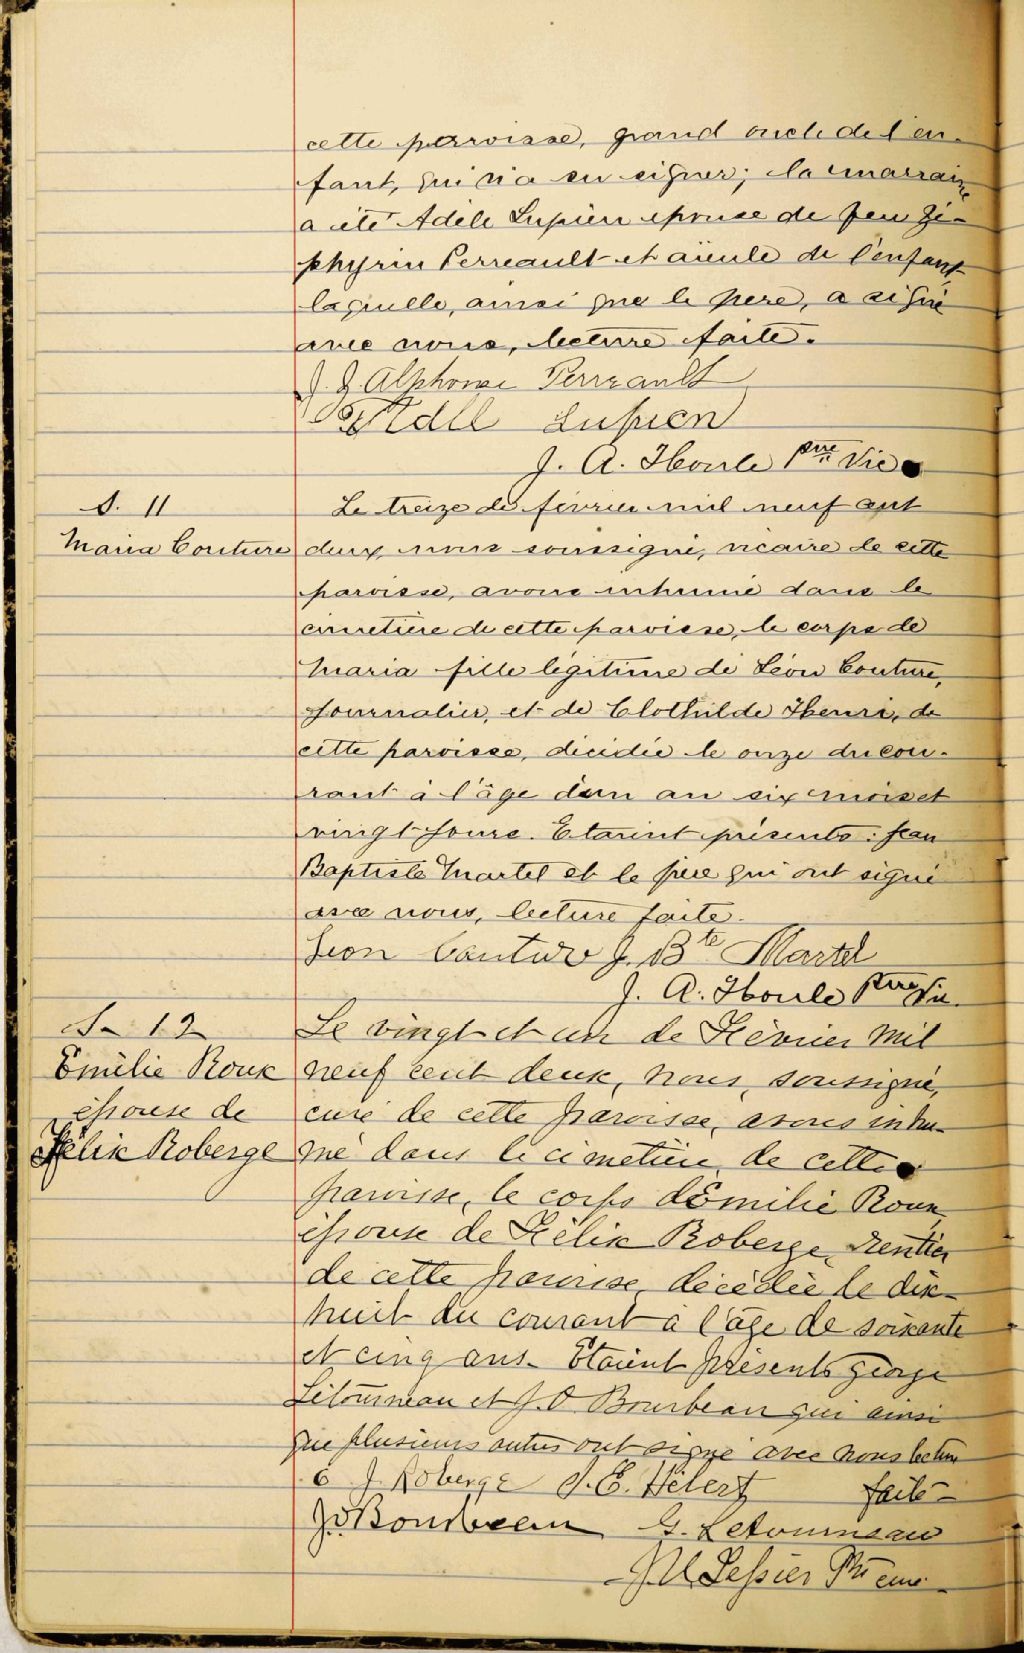 cette parroisse, grand oncle de l'en-
fant, qui n'a su signer; la marraine
a été Adèle Lupien epouse de feu Zé-
phyrin Perreault et aïeule de l'enfant
laquelle, ainsi que le père, a signé
avec nous, lecture faite.
J. J. Alphonse Perreault
Adèl Lupien
J. A. Houle Ptre Vic
S. 11
Maria Couture
Le treize de février mil neuf cent
deux, nous soussigné, vicaire de cette
paroisse, avons inhumé dans le
cimetière de cette paroisse, le corps de
Maria fille légitime de Léon Couture,
journalier, et de Clothilde Henri, de
cette paroisse, décédée le onze du cou-
rant à l'âge d'un an six mois et
vingt jours. Etaient présents: Jean
Baptiste Martel et le père qui ont signé
avec nous, lecture faite.
Leon Couture J. Bte Martel
J. A. Houle Ptre Vic.
S- 12
Emilie Roux
épouse de
Félix Roberge
Le vingt et un de Février mil
neuf cent deux, nous, soussigné,
curé de cette paroisse, avons inhu-
mé dans le cimetière de cette
paroisse, le corps d'Emilie Roux,
épouse de Félix Roberge, rentier
de cette paroisse, décédée le dix-
huit du courant à l'âge de soixante
et cinq ans. Etaient présents George
Létourneau et J.O. Bourbeau qui ainsi
que plusieurs autres ont signé avec nous lecture
faite-
J Roberge J. E. Hébert
J.O Bourbeau G. Letourneau
J.U. Tessier Ptre curé.